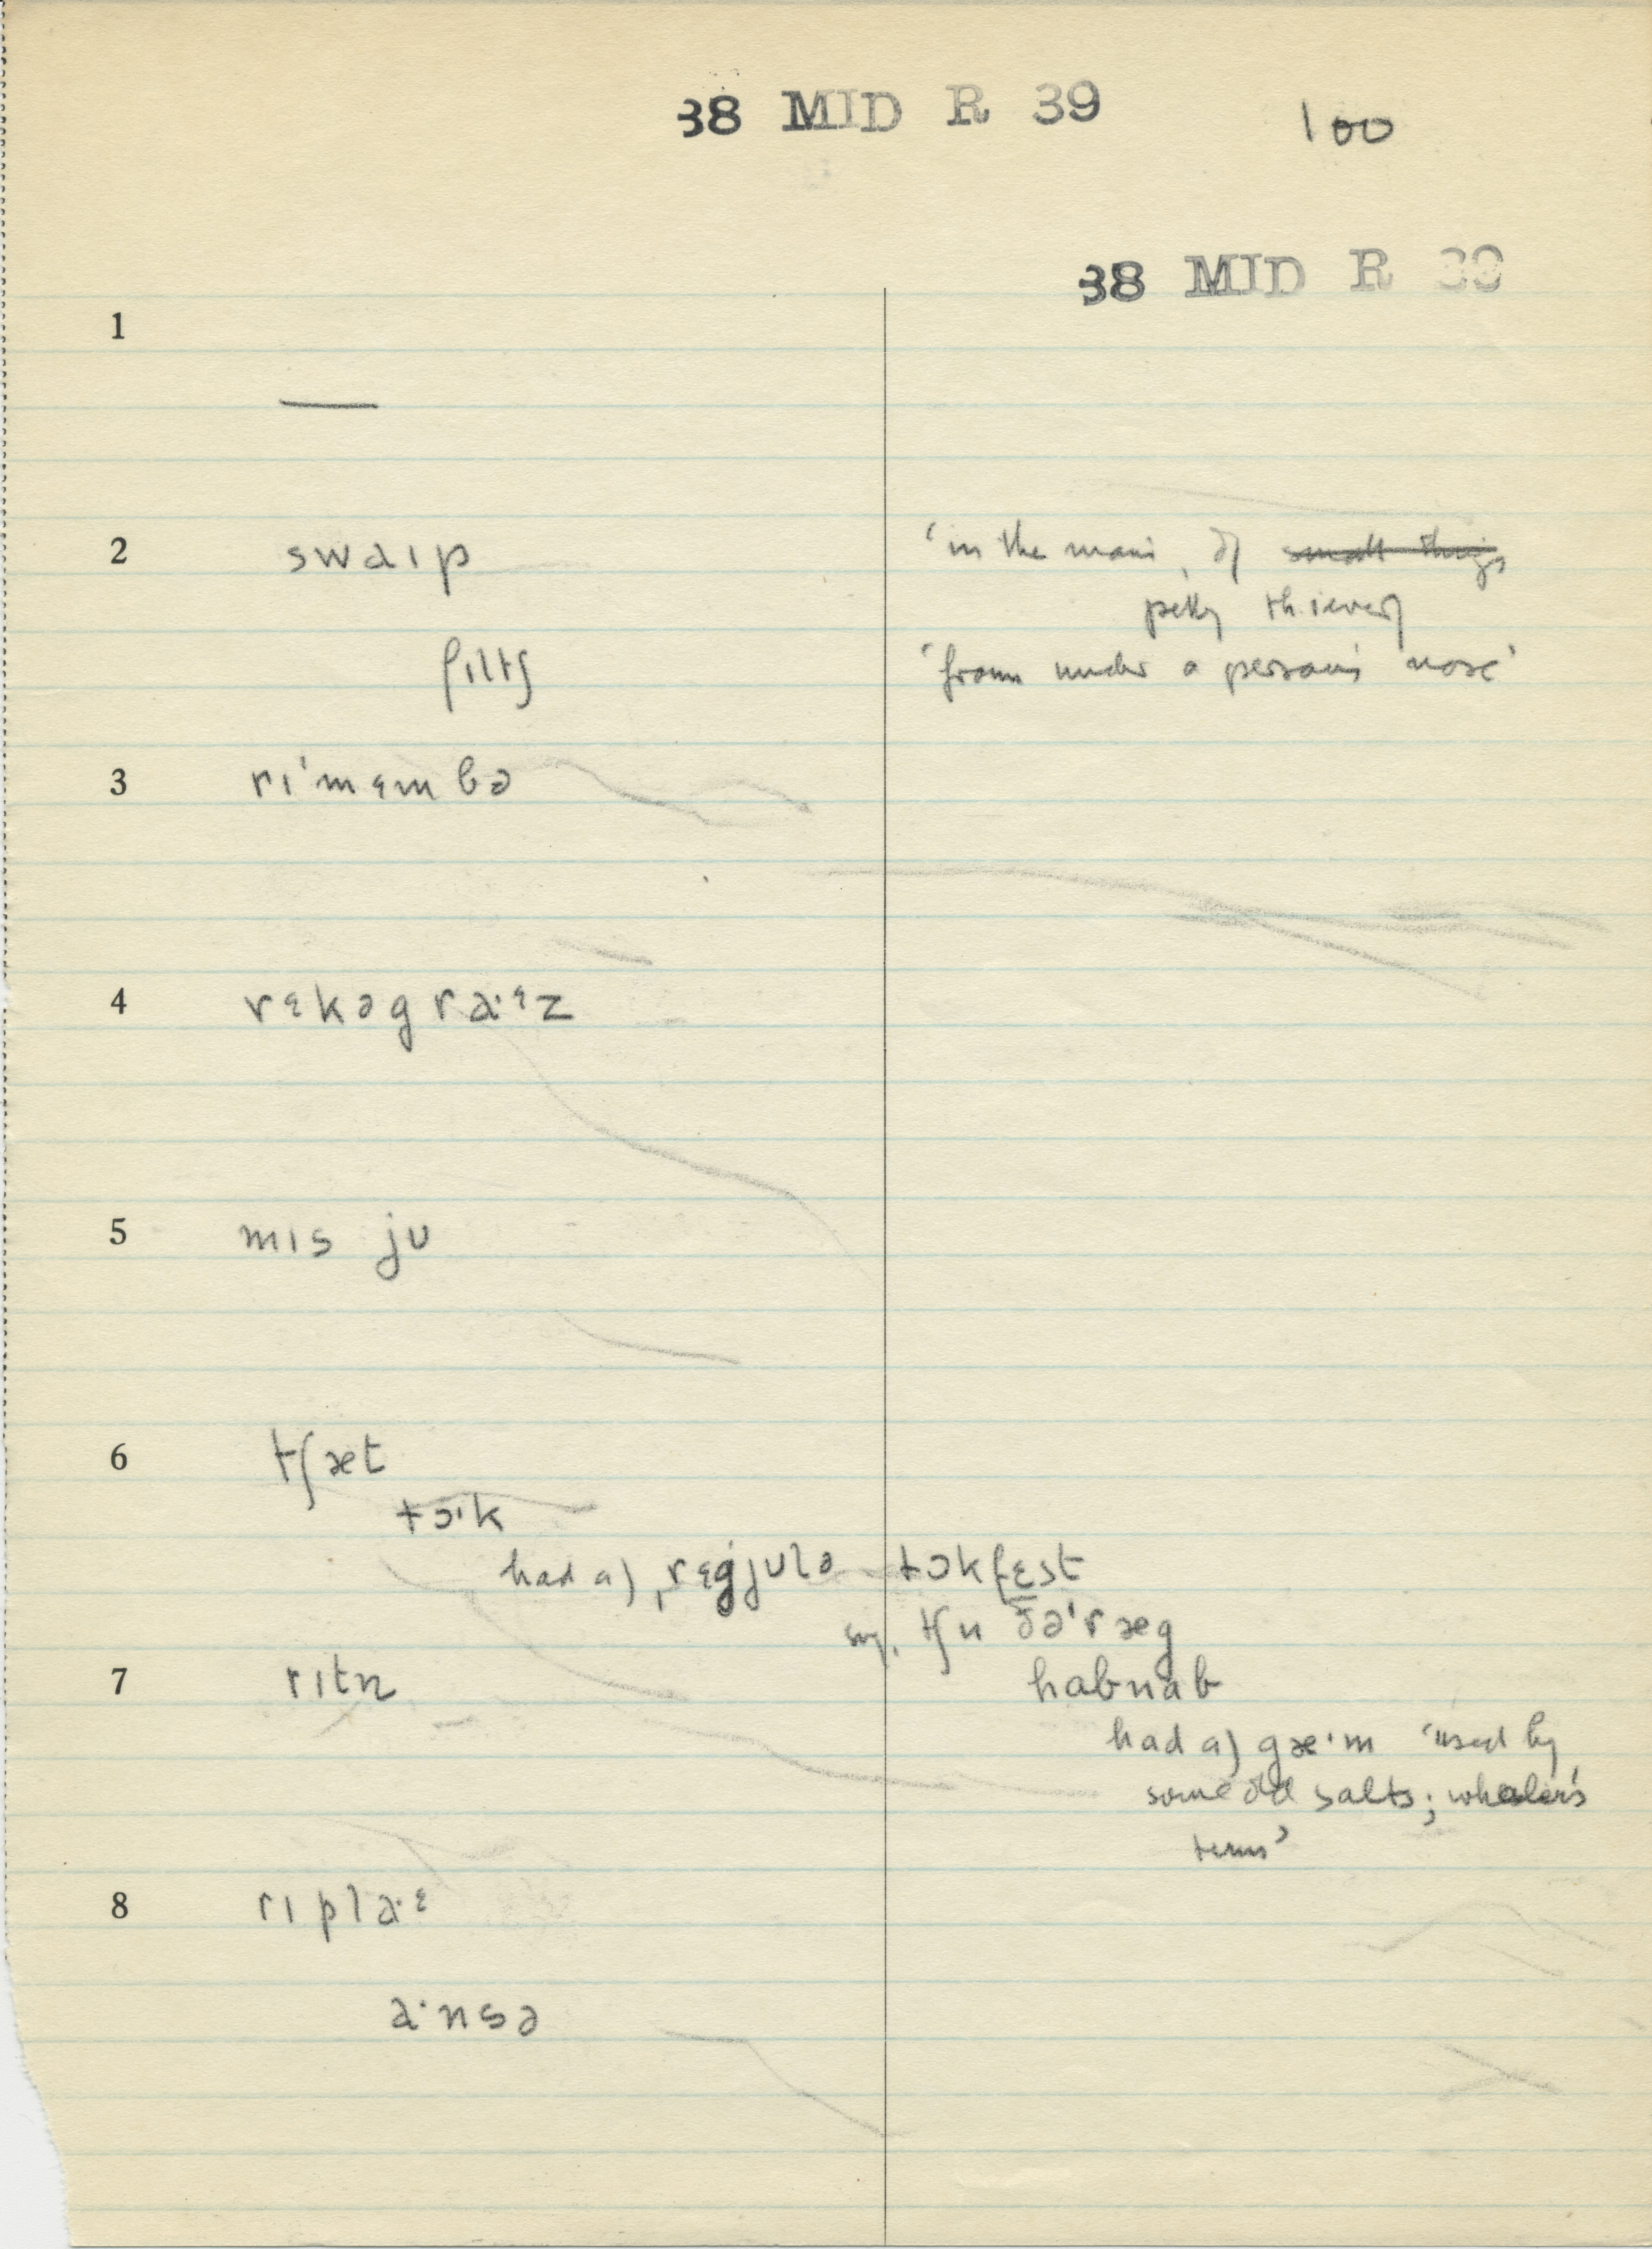 38 MID R 39 100
38 MID R 39
1
—
2 swaɪp ‘in the main, of small things
petty thievery
fɪltʃ ‘from under a person's nose’
3 rɪˈmɛmbə
4 rɛkəgraˑᵋz
5 mɪs jʊ
6 tʃæt
tɔˑk
had a) ˌrɛgjʊlə tɔkfɛst
syn. tʃu ðəˈræg
7 rɪtn habnab
had a) gæˑm ‘used by
some old salts; whaler's
term’
8 rɪplaˑᵋ
aˑnsə